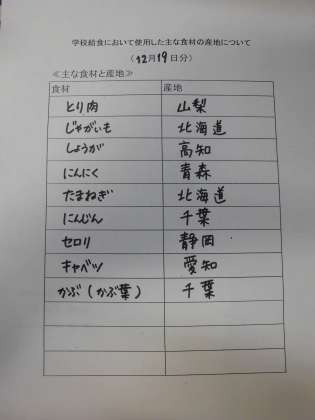 学校給食において使用した主な食材の産地について
（12月19日分）
≪主な食材と産地≫
食材 産地
とり肉 山梨
じゃがいも 北海道
しょうが 高知
にんにく 青森
たまねぎ 北海道
にんじん 千葉
セロリ 静岡
キャベツ 愛知
かぶ（かぶ葉） 千葉